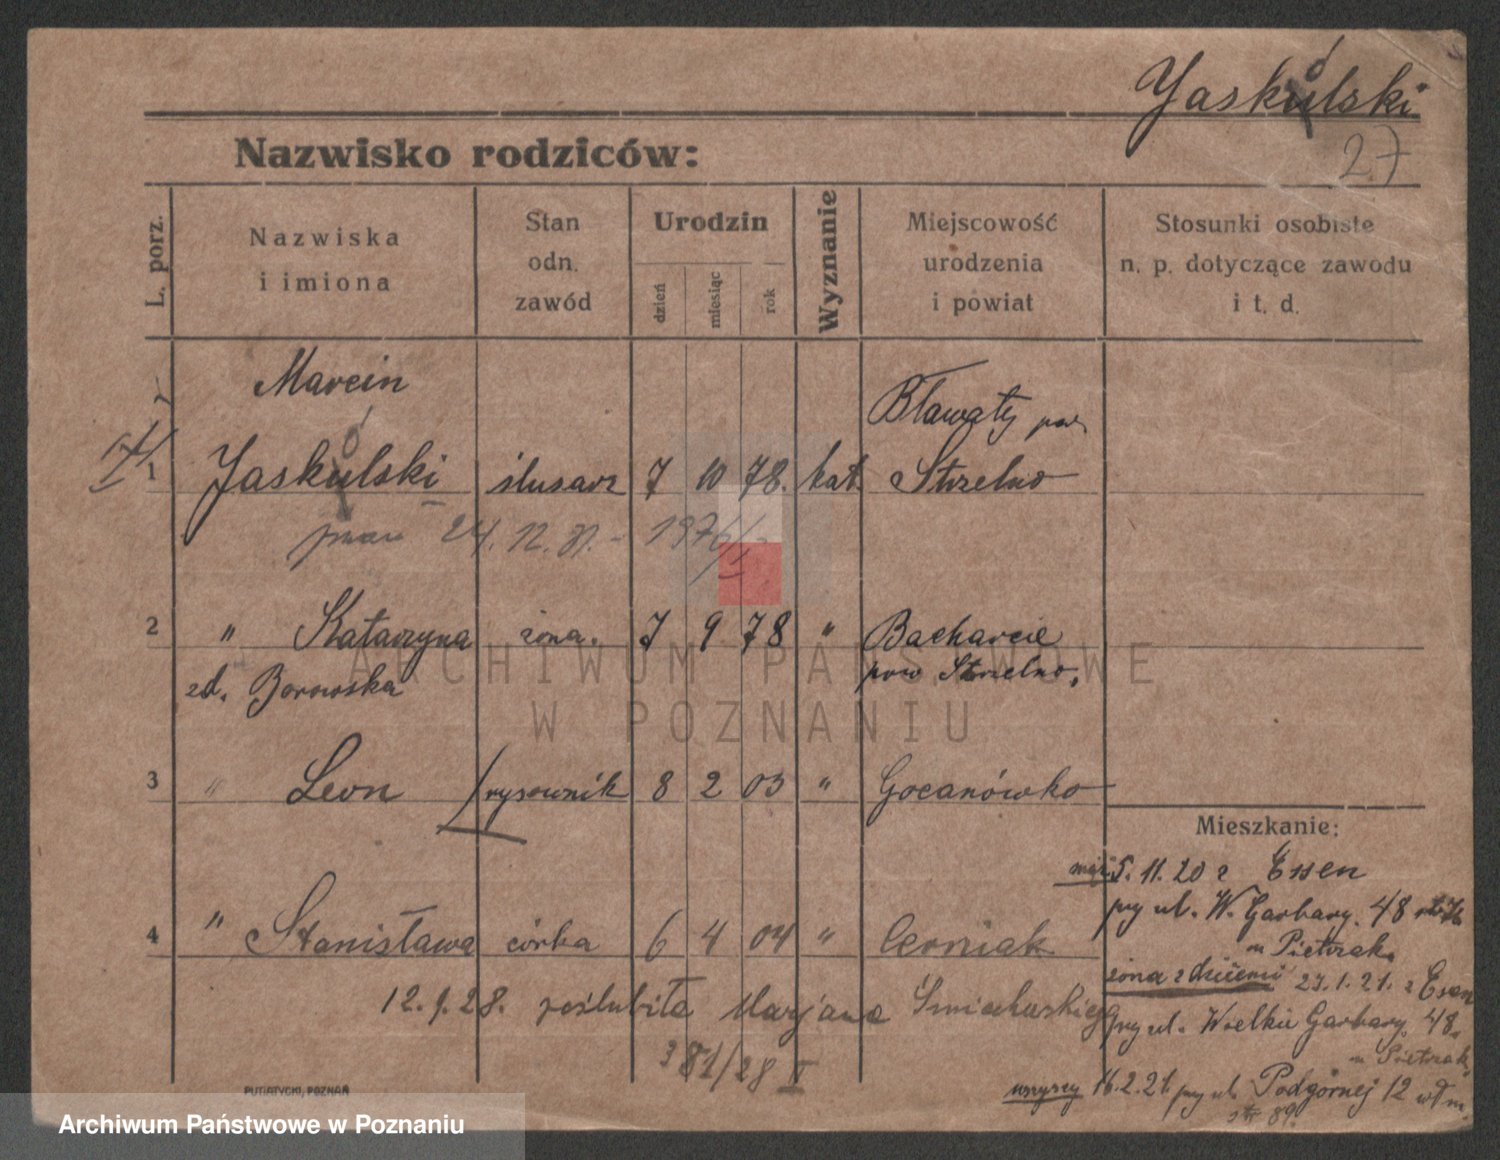 Jaskólski
27
Nazwisko rodziców:
L. porz.
Nazwiska
i imiona
Stan
odn.
zawód
Urodzin
dzień
miesiąc
rok
Wyznanie
Miejscowość
urodzenia
i powiat
Stosunki osobiste
n. p. dotyczące zawodu
i t. d.
Marcin
Bławaty pow.
1 Jaskólski ślusarz 7 10 78. kat. Strzelno
24. 12. 1976/I
2 " Katarzyna żona. 7 9 78 " Bacharcie
zd. Borowska pow Strzelno,
3 " Leon rysownik 8 2 03 " Gocanówko
Mieszkanie:
5. 11. 20 z Essen
przy ul. W. Garbary. 48
u Pietrzak.
4 " Stanisława córka 6 4 04 "
żona z dziećmi 23. 1. 21. z Essen
12. 9. 28. poślubiła Marjana
przy ul. Wielkie Garbary 48.
u Pietrzak,
381/28 I
wszyscy 16. 2. 21. przy ul. Podgórnej 12
str 89.
PUTIATYCKI, POZNAŃ
ARCHIWUM PAŃSTWOWE
W POZNANIU
Archiwum Państwowe w Poznaniu